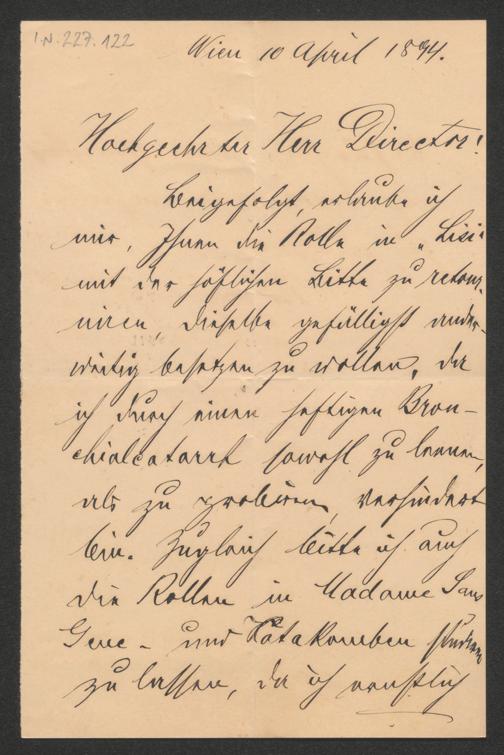 I.N. 227.122
Wien 10 April 1894.
Hochgeehrter Herr Director!
Beigefolgt, erlaube ich
mir, Ihnen die Rolle in „Lisi"
mit der höflichen Bitte zu retour-
niren, dieselbe gefälligst ander-
weitig besetzen zu wollen, da
ich durch einen heftigen Bron-
chialcatarrh sowohl zu lernen,
als zu probiren, verhindert
bin. Zugleich bitte ich auch
die Rollen in Madame Sans
Gene - und Katakomben studiren
zu lassen, da ich ernstlich